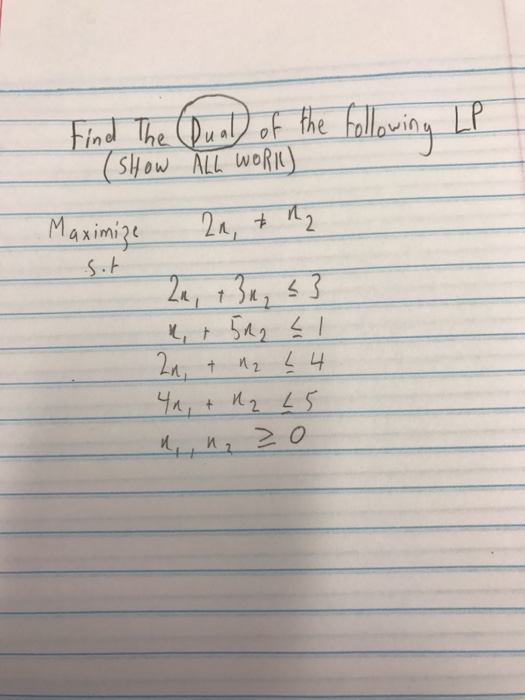 Find The Dual of the following LP
(SHOW ALL WORK)
Maximize 2x₁ + x₂
s.t
2x₁ + 3x₂ ≤ 3
x₁ + 5x₂ ≤ 1
2x₁ + x₂ ≤ 4
4x₁ + x₂ ≤ 5
x₁, x₂ ≥ 0